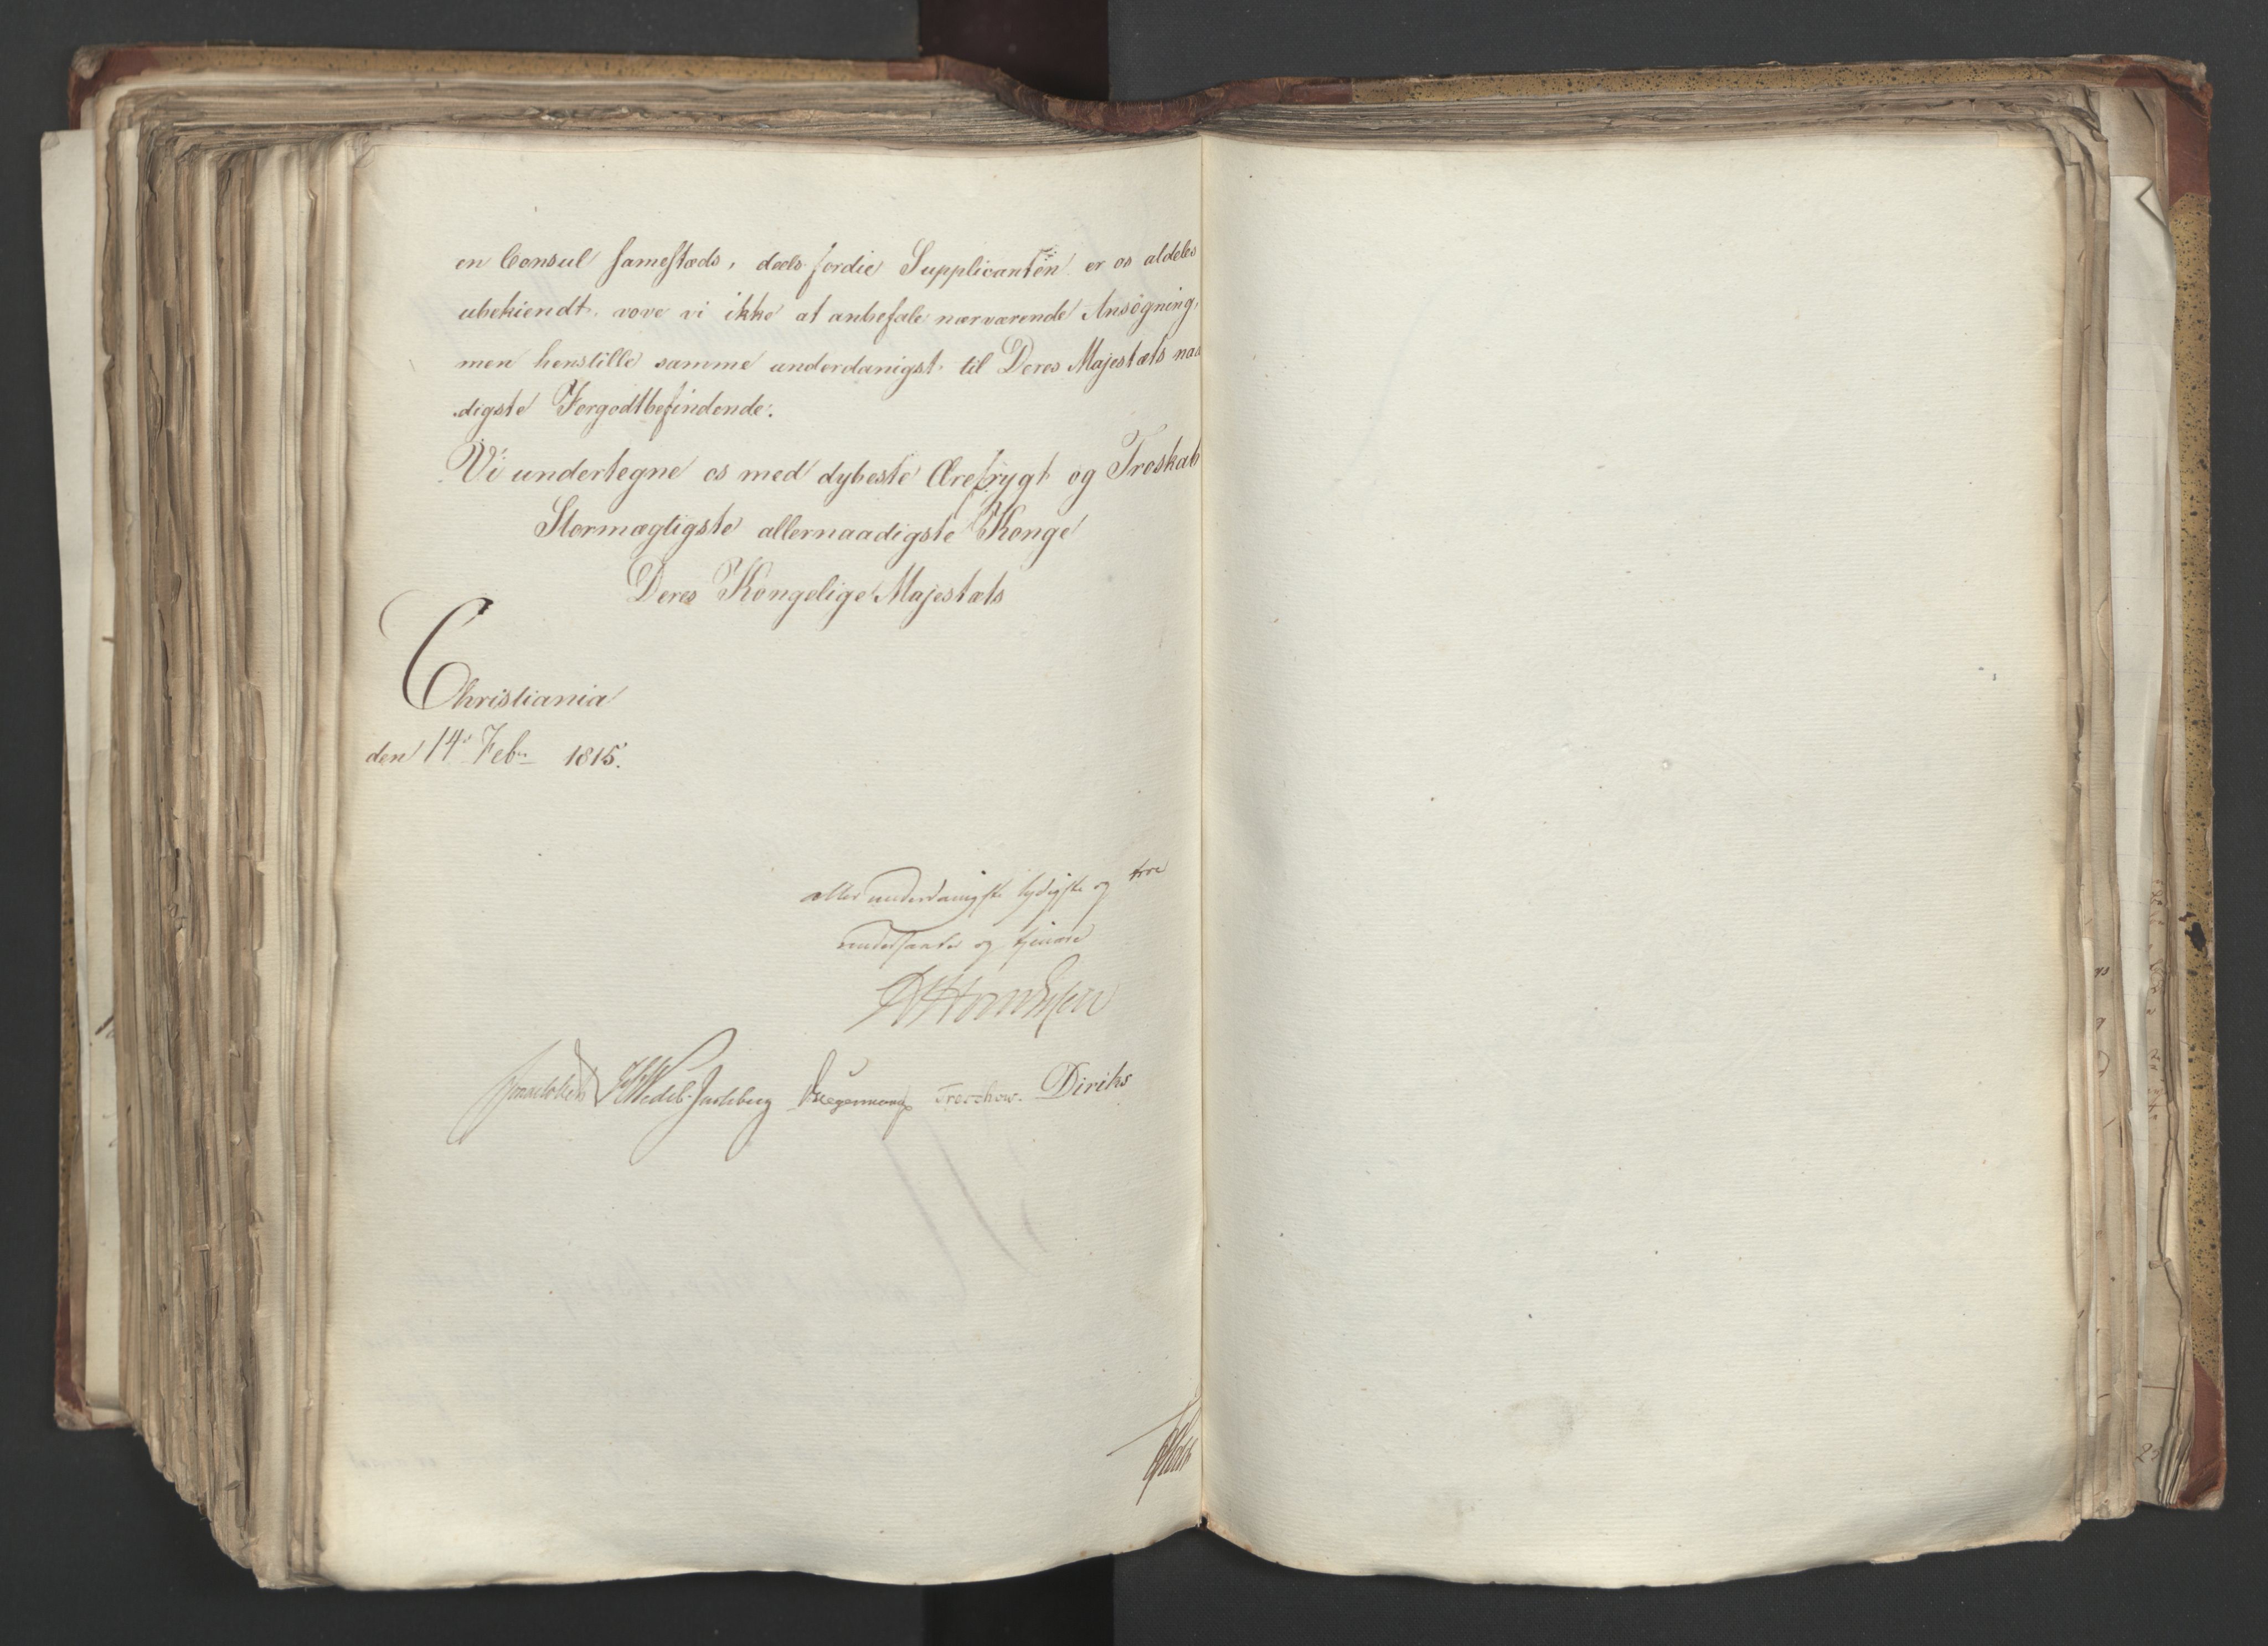 en Consul samesteds, deels fordie Supplicanten er os aldeles
ubekiendt, vove vi ikke at anbefale nærværende Ansögning,
men henstille samme underdanigst til Deres Majestæts naa
digste Forgodtbefindende.
Vi undertegne os med dybeste Ærefrygt og Troskab
Stormægtigste allernaadigste Konge
Deres Kongelige Majestæts
Christiania
den 14de Febr 1815.
allerunderdanigste lydigste og troe
undersaatter og tjenere
Wedel-Jarlsberg Hegermann Treschow. Diriks